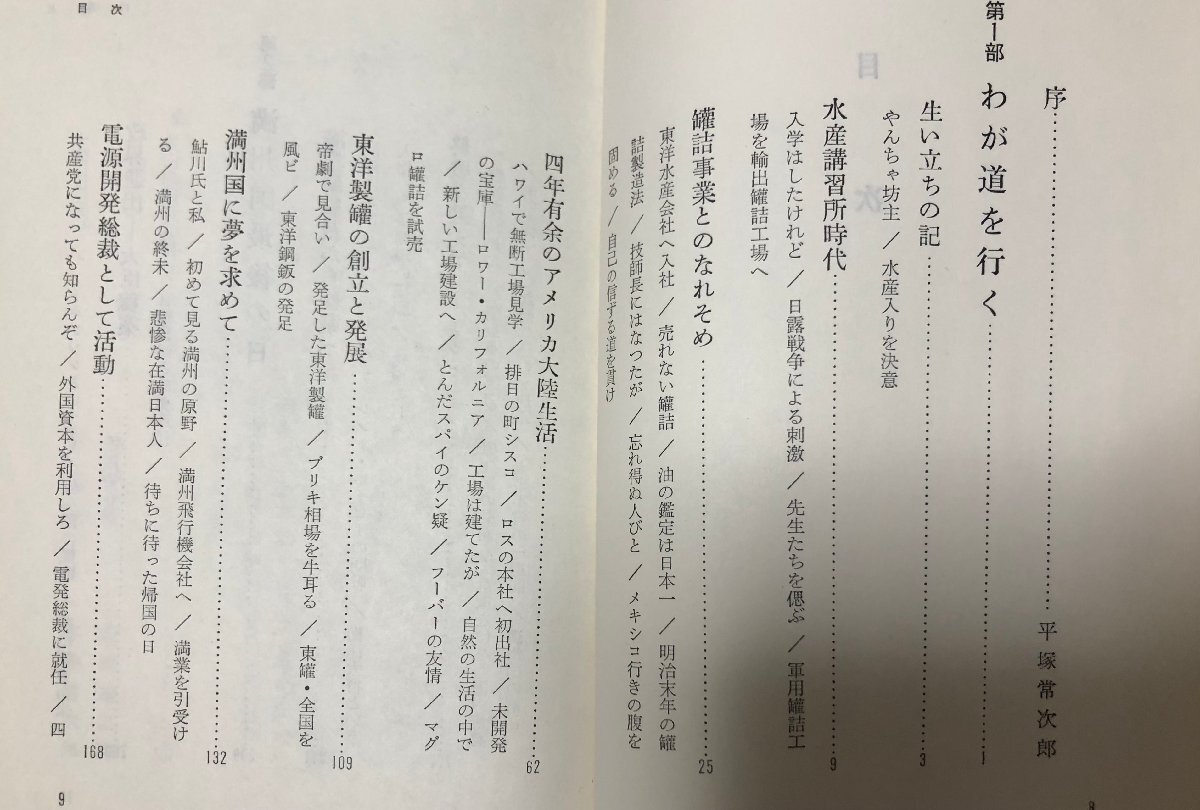 序……………………平塚常次郎
第Ⅰ部　わが道を行く……………………1
生い立ちの記……………………3
やんちゃ坊主／水産入りを決意
水産講習所時代……………………9
入学はしたけれど／日露戦争による刺激／先生たちを偲ぶ／軍用罐詰工
場を輸出罐詰工場へ
罐詰事業とのなれそめ……………………25
東洋水産会社へ入社／売れない罐詰／油の鑑定は日本一／明治末年の罐
詰製造法／技師長にはなつたが／忘れ得ぬ人びと／メキシコ行きの腹を
固める／自己の信ずる道を貫け
四年有余のアメリカ大陸生活……………………62
ハワイで無断工場見学／排日の町シスコ／ロスの本社へ初出社／未開発
の宝庫――ロワー・カリフォルニア／工場は建てたが／自然の生活の中で
／新しい工場建設へ／とんだスパイのケン疑／フーバーの友情／マグ
ロ罐詰を試売
東洋製罐の創立と発展……………………109
帝劇で見合い／発足した東洋製罐／ブリキ相場を牛耳る／東罐・全国を
風ビ／東洋鋼鈑の発足
満州国に夢を求めて……………………132
鮎川氏と私／初めて見る満州の原野／満州飛行機会社へ／満業を引受け
る／満州の終末／悲惨な在満日本人／待ちに待った帰国の日
電源開発総裁として活動……………………168
共産党になっても知らんぞ／外国資本を利用しろ／電発総裁に就任／四
目次
9